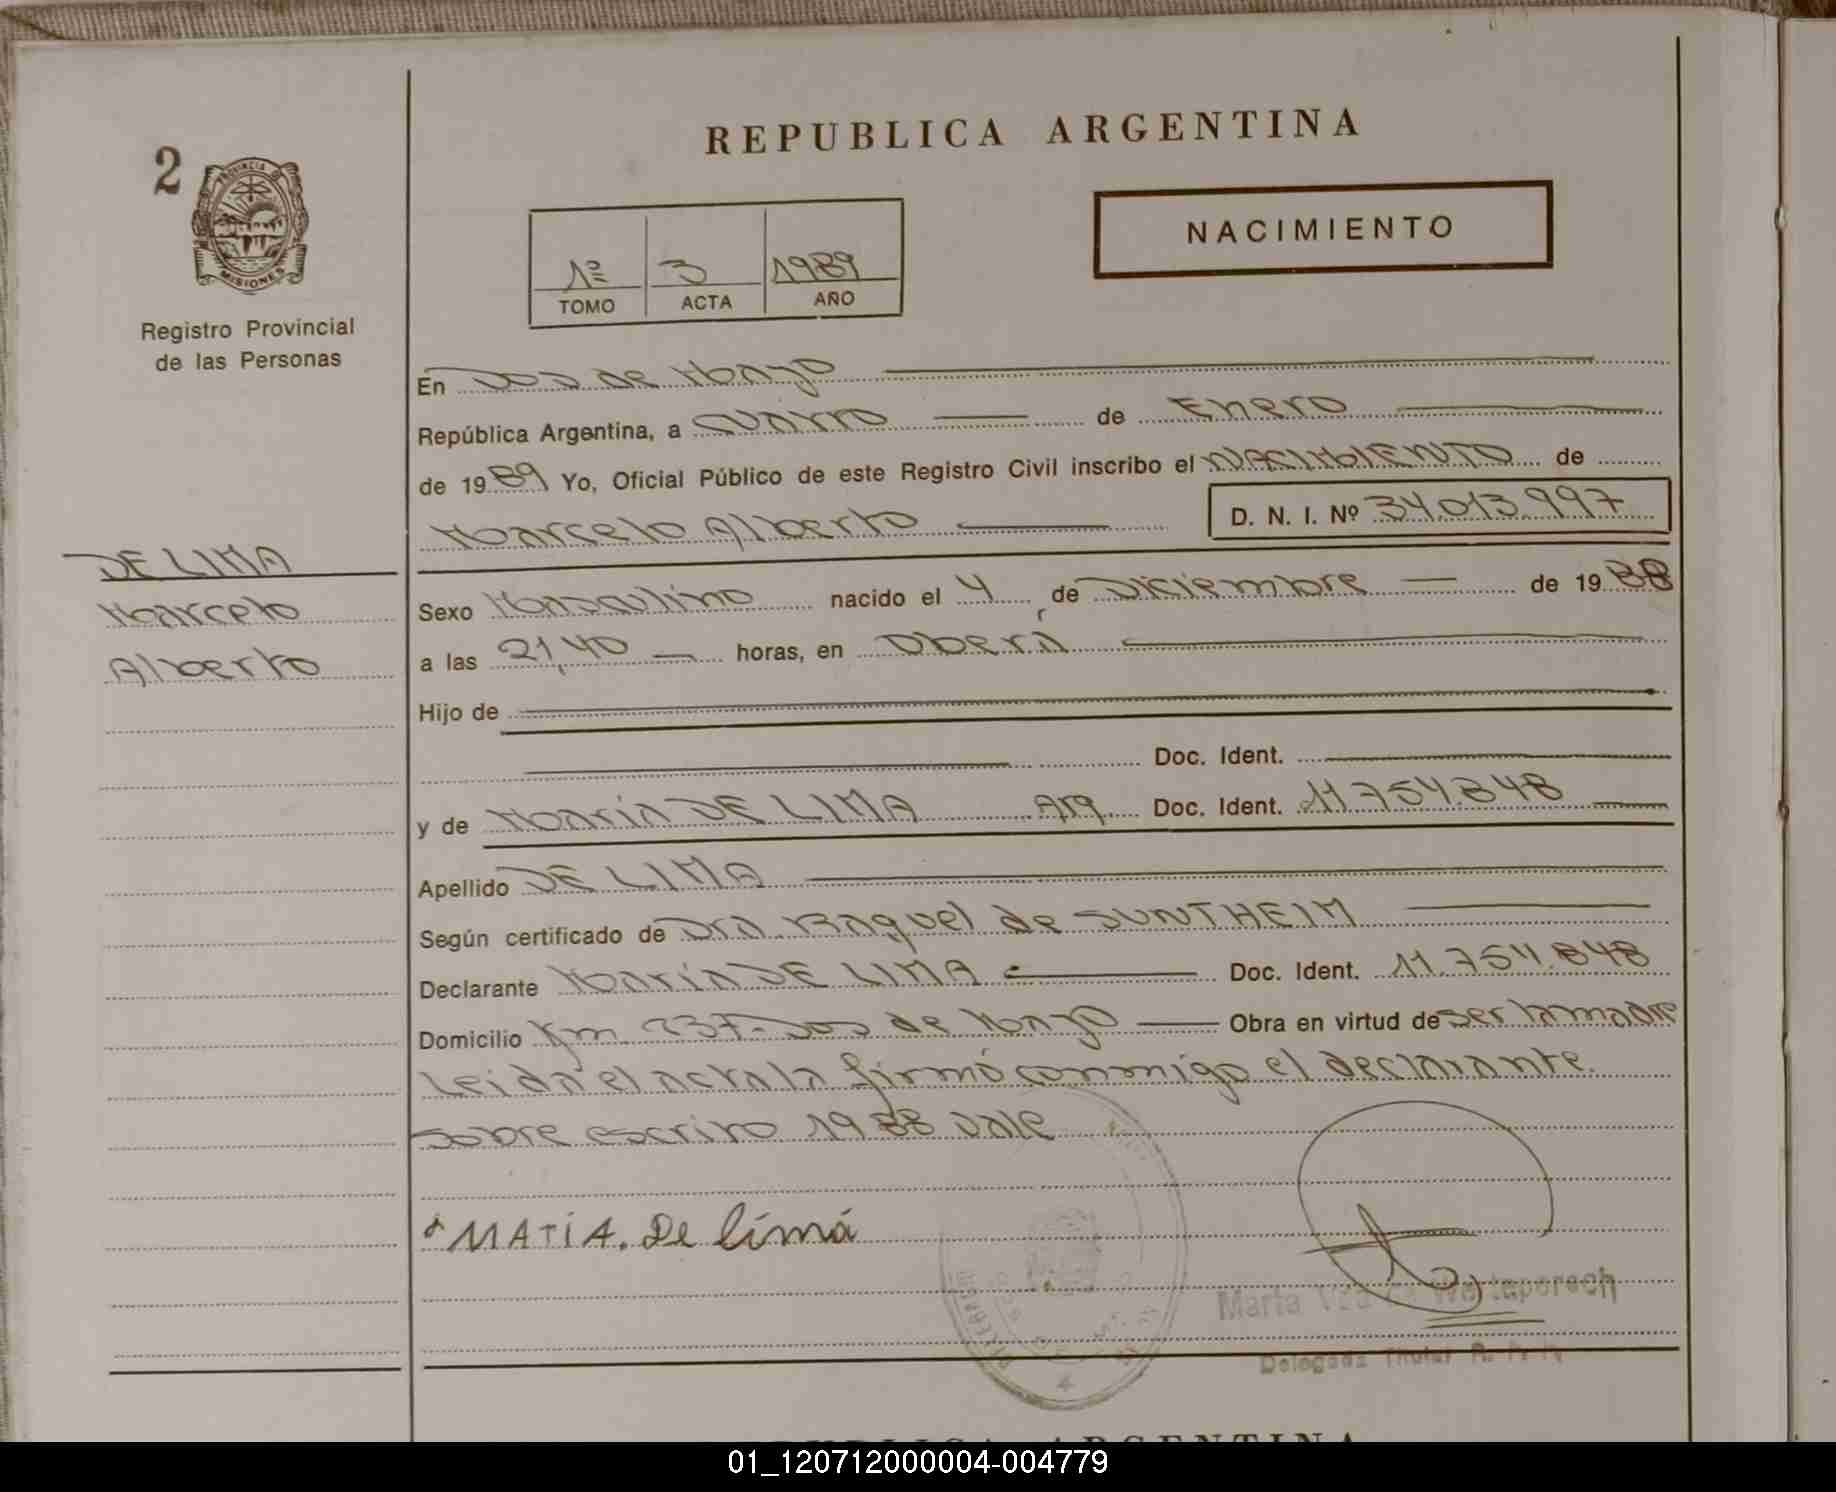 REPUBLICA ARGENTINA
2
PROVINCIA DE
MISIONES
NACIMIENTO
1º 3 1989
TOMO ACTA AÑO
Registro Provincial
de las Personas
En Dos de Mayo
República Argentina, a cuatro de Enero
de 1989 Yo, Oficial Público de este Registro Civil inscribo el NACIMIENTO de
Marcelo Alberto D. N. I. Nº 34.013.997
DE LIMA
Marcelo
Alberto
Sexo Masculino nacido el 4 de Diciembre de 1988
a las 21,40 horas, en Oberá
Hijo de
Doc. Ident.
y de María DE LIMA Arg Doc. Ident. 11.754.848
Apellido DE LIMA
Según certificado de Dra. Raquel de SUNTHEIM
Declarante María DE LIMA Doc. Ident. 11.754.848
Domicilio Km. 237-Dos de Mayo Obra en virtud de ser la madre
Leida el acta la firmó conmigo el declarante.
sobre escrito 1988 vale
MATIA. De limá
María
Delegada Titular
REPUBLICA ARGENTINA
01_120712000004-004779